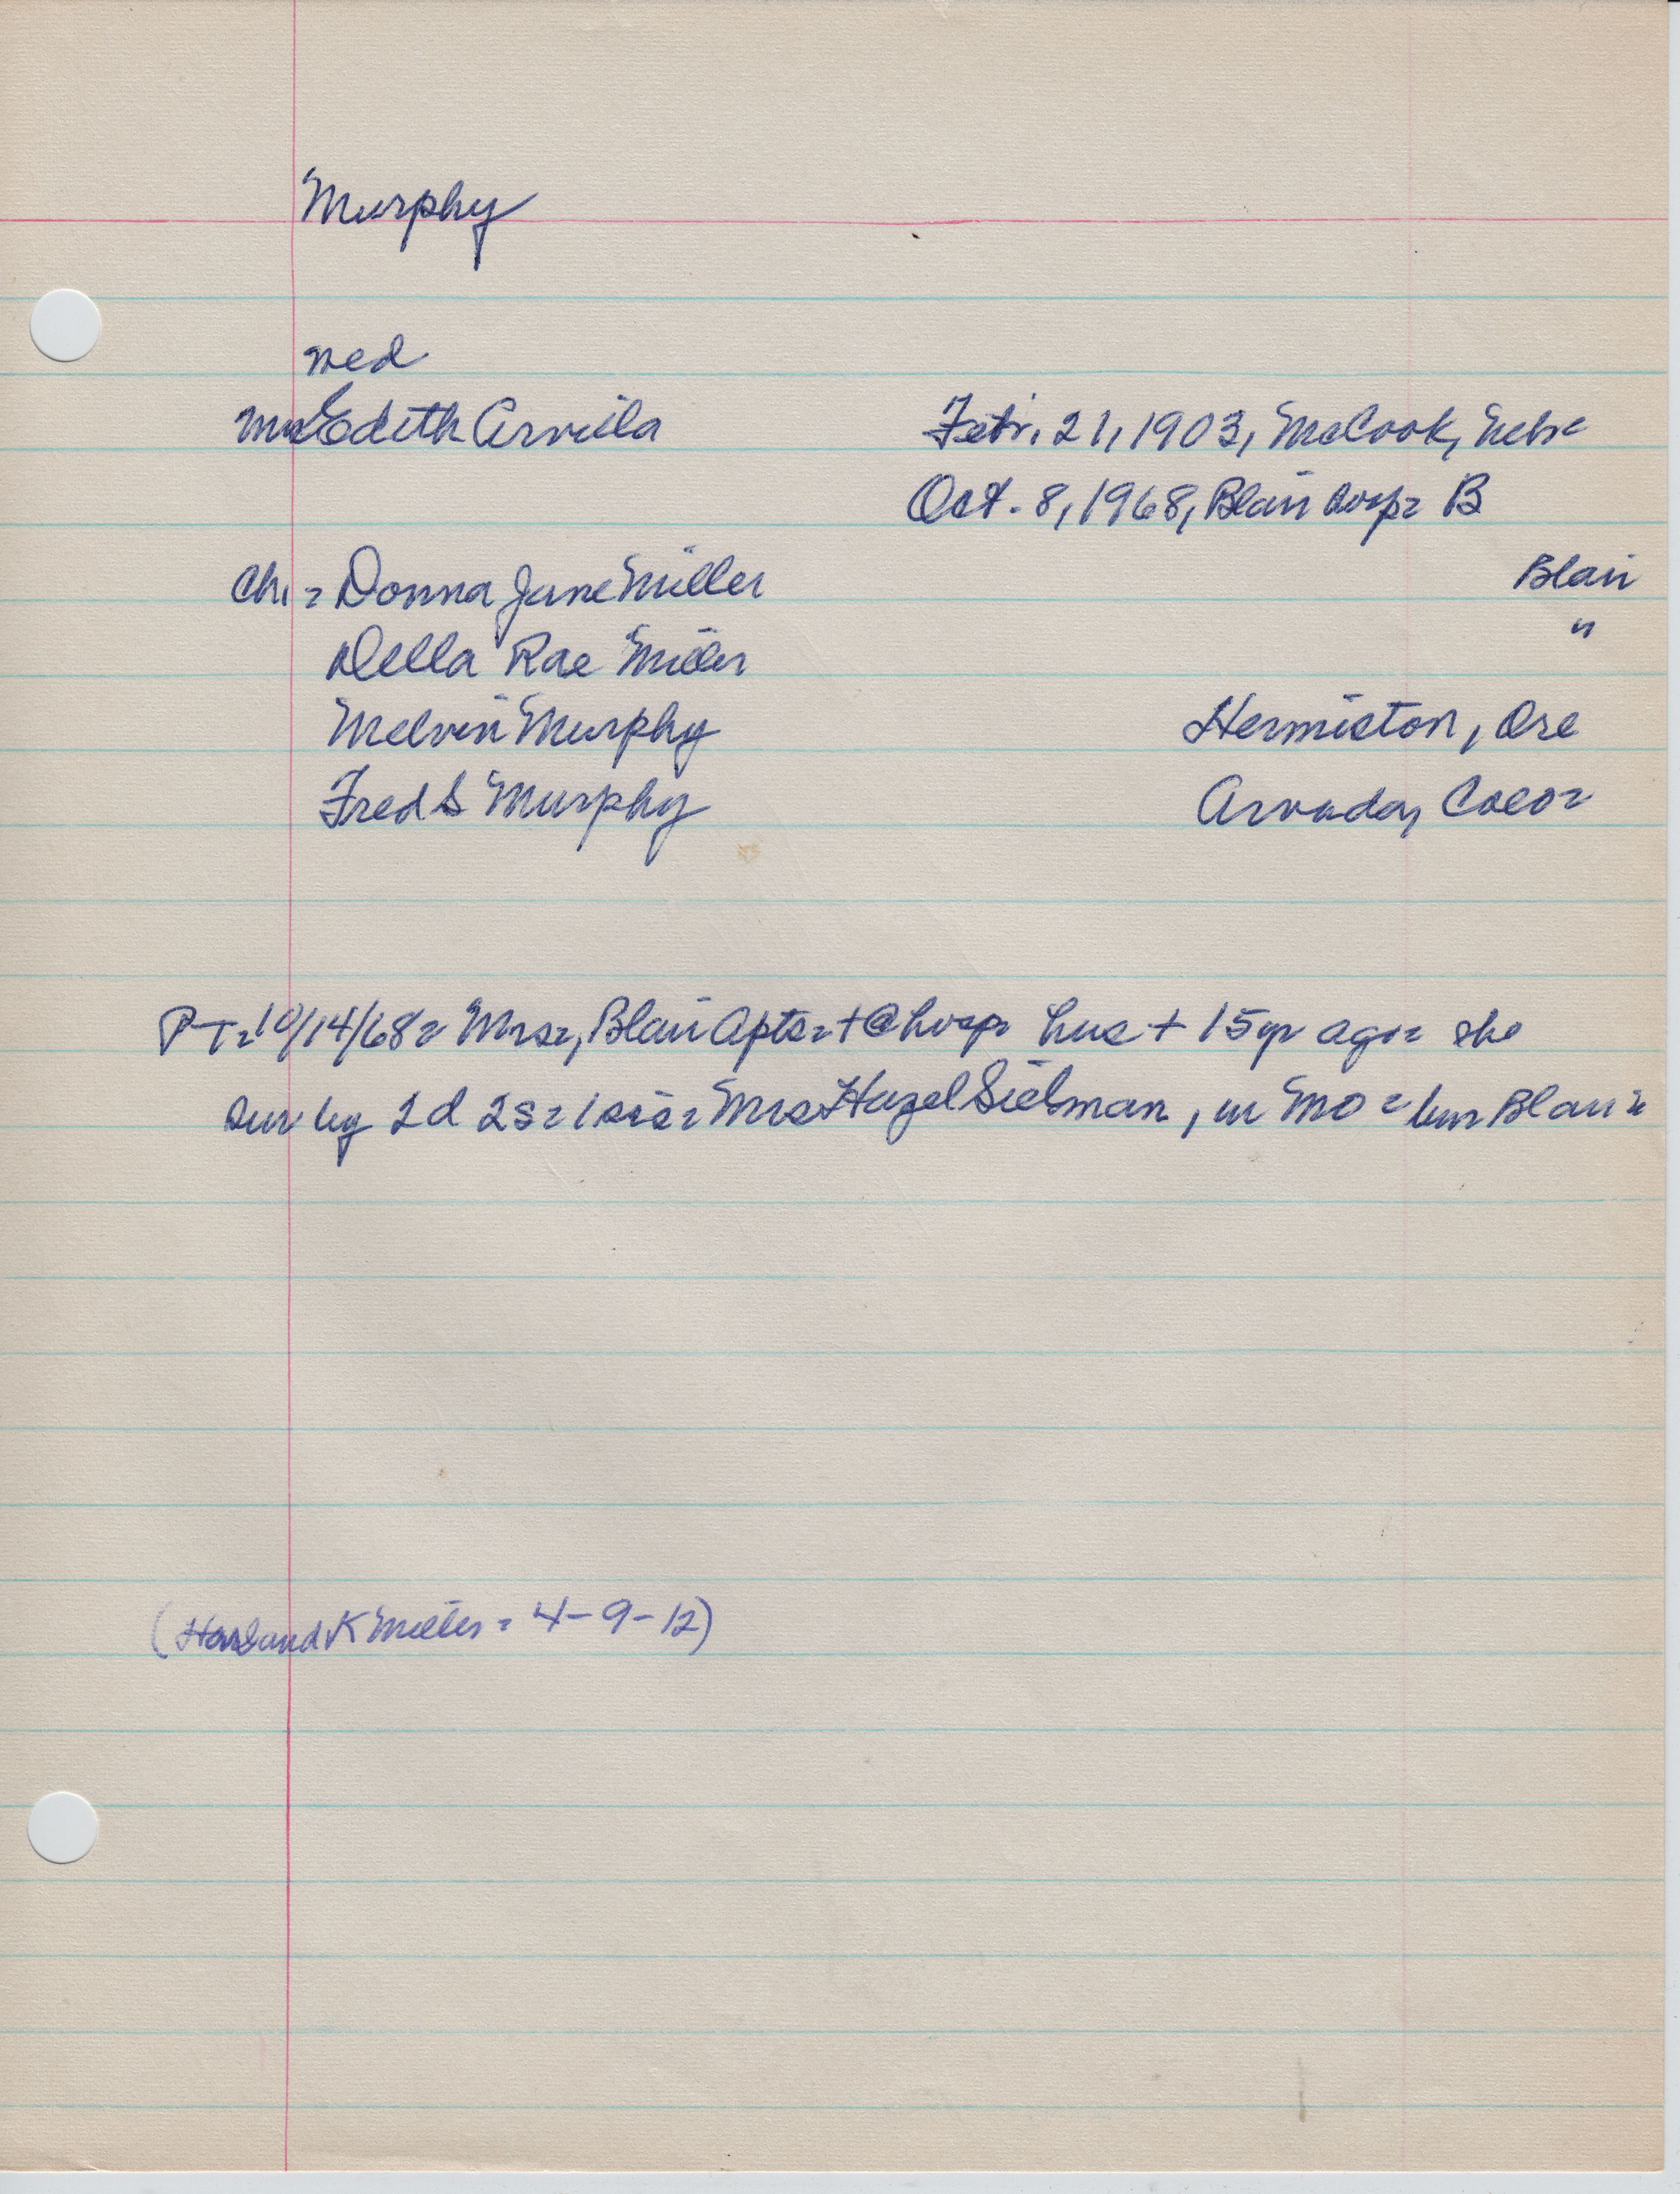 Murphy
Ned
Mrs Edith Arvilla Febr. 21, 1903, McCook, Nebr
Oct. 8, 1968, Blair hosp= B
Ch= Donna Jane Miller Blair
Della Rae Miller "
Melvin Murphy Hermiston, Ore
Fred S Murphy Arvada, Colo=
PT=10/14/68= Mrs=, Blair Apts=+@hosp= hus + 15 yr ago= she
sur by 2d 2s=1sis= Mrs Hazel Sielman, in MO= bur Blair=
(Harland K Miller= 4-9-12)